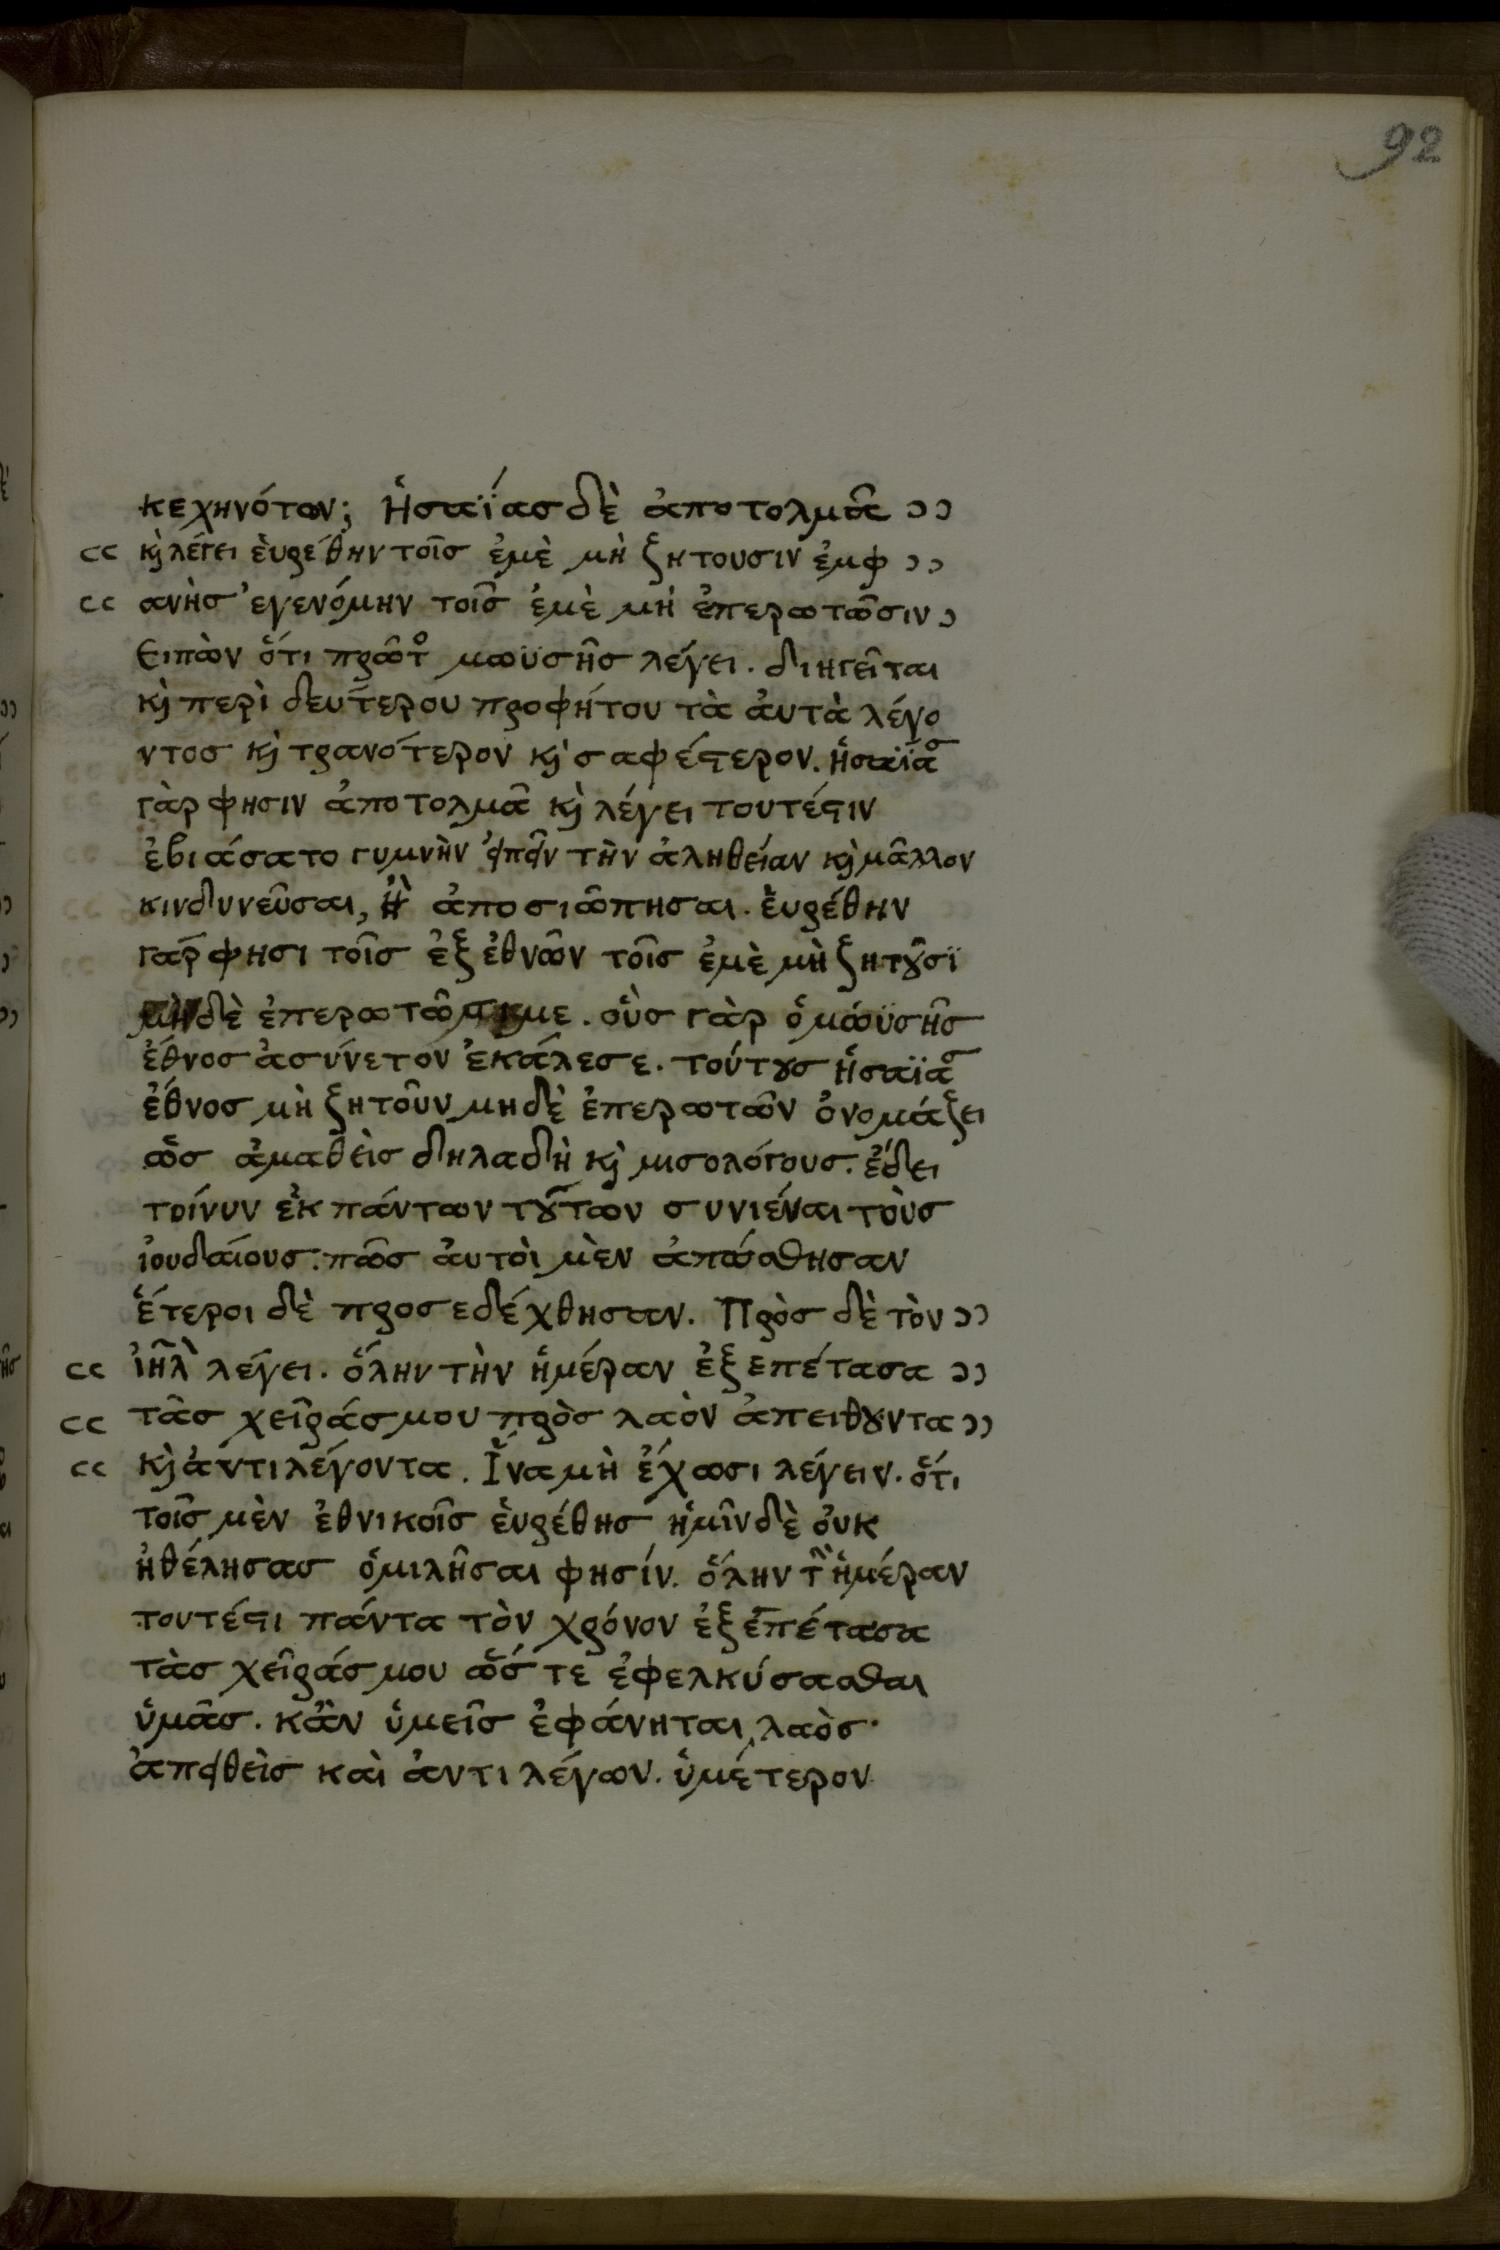 92
κεχηνότων; Ἡσαΐας δὲ ἀποτολμᾶ ››
‹‹ κὶ λέγει ἑυρέθην τοῖς ἐμὲ μὴ ζητουσιν ἐμφ ››
‹‹ ανὴς ἐγενόμην τοῖς ἐμὲ μὴ ἐπερωτῶσιν ›
Ειπὼν ὅτι πρῶτο μωϋσῆς λέγει. διηγεῖται
κὶ περὶ δευτέρου προφήτου τὰ ἀυτὰ λέγο
ντος κὶ τρανότερον κὶ σαφέϛερον. ἡσαΐας
γὰρ φησιν ἀποτολμᾶ κὶ λέγει τουτέϛιν
ἐβιάσατο γυμνὴν ἐιπεῖν τὴν ἀληθείαν κὶ μᾶλλον
κινδυνεῦσαι, ἢ ἀποσιῶπησαι. ἑυρέθην
γάρ φησι τοῖς ἐξ ἐθνῶν τοῖς ἐμὲ μὴ ζητȣ͂σϊ
μὴδὲ ἐπερωτῶσι με. οὓς γὰρ ὁ μωϋσῆς
ἔθνος ἀσύνετον ἐκάλεσε. τούτȣς Ἡσαΐας
ἔθνος μὴ ζητοῦν μηδὲ ἐπερωτῶν ὀνομάζει
ὡς ἀμαθεὶς δηλαδὴ κὶ μισολόγους. ἔδει
τοίνυν ἐκ πάντων τȣ́των συνιέναι τοὺς
ἰουδαίους. πῶς ἀυτὸι μὲν ἀπώσθησαν
ἕτεροι δὲ προσεδέχθησαν. Πρὸς δὲ τὸν ››
‹‹ ἰη̅λ λέγει. ὅλην τὴν ἡμέραν ἐξεπέτασα ››
‹‹ τᾶς χεῖράς μου πρὸς λαὸν ἀπειθȣ͂ντα ››
‹‹ κὶ ἀντιλέγοντα. Ἵνα μὴ ἔχωσι λέγειν. ὅτι
τοῖς μὲν ἐθνικοῖς ἑυρέθης ἡμῖν δὲ ὀυκ
ἠθέλησας ὁμιλῆσαι φησίν. ὅλην τὴν ἡμέραν
τουτέϛι πάντα τὸν χρόνον ἐξεπέτασα
τὰς χεῖράς μου ὥστε ἐφελκύσασθαι
ὑμᾶς. κἂν ὑμεῖς ἐφάνηται, λαὸς·
ἀπειθεὶς καὶ ἀντιλέγων. ὑμέτερον